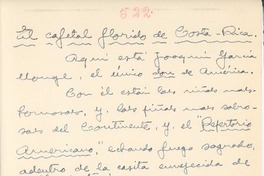 522
El cafetal florido de Costa-Rica.
Aquí está Joaquín García
Monge, el único don de América.
Con él están las niñas más
hermosas, y las piñas más sabro-
sas del Continente, y el "Repertorio
Americano," echando fuego sagrado,
adentro de la casita enrejecida de